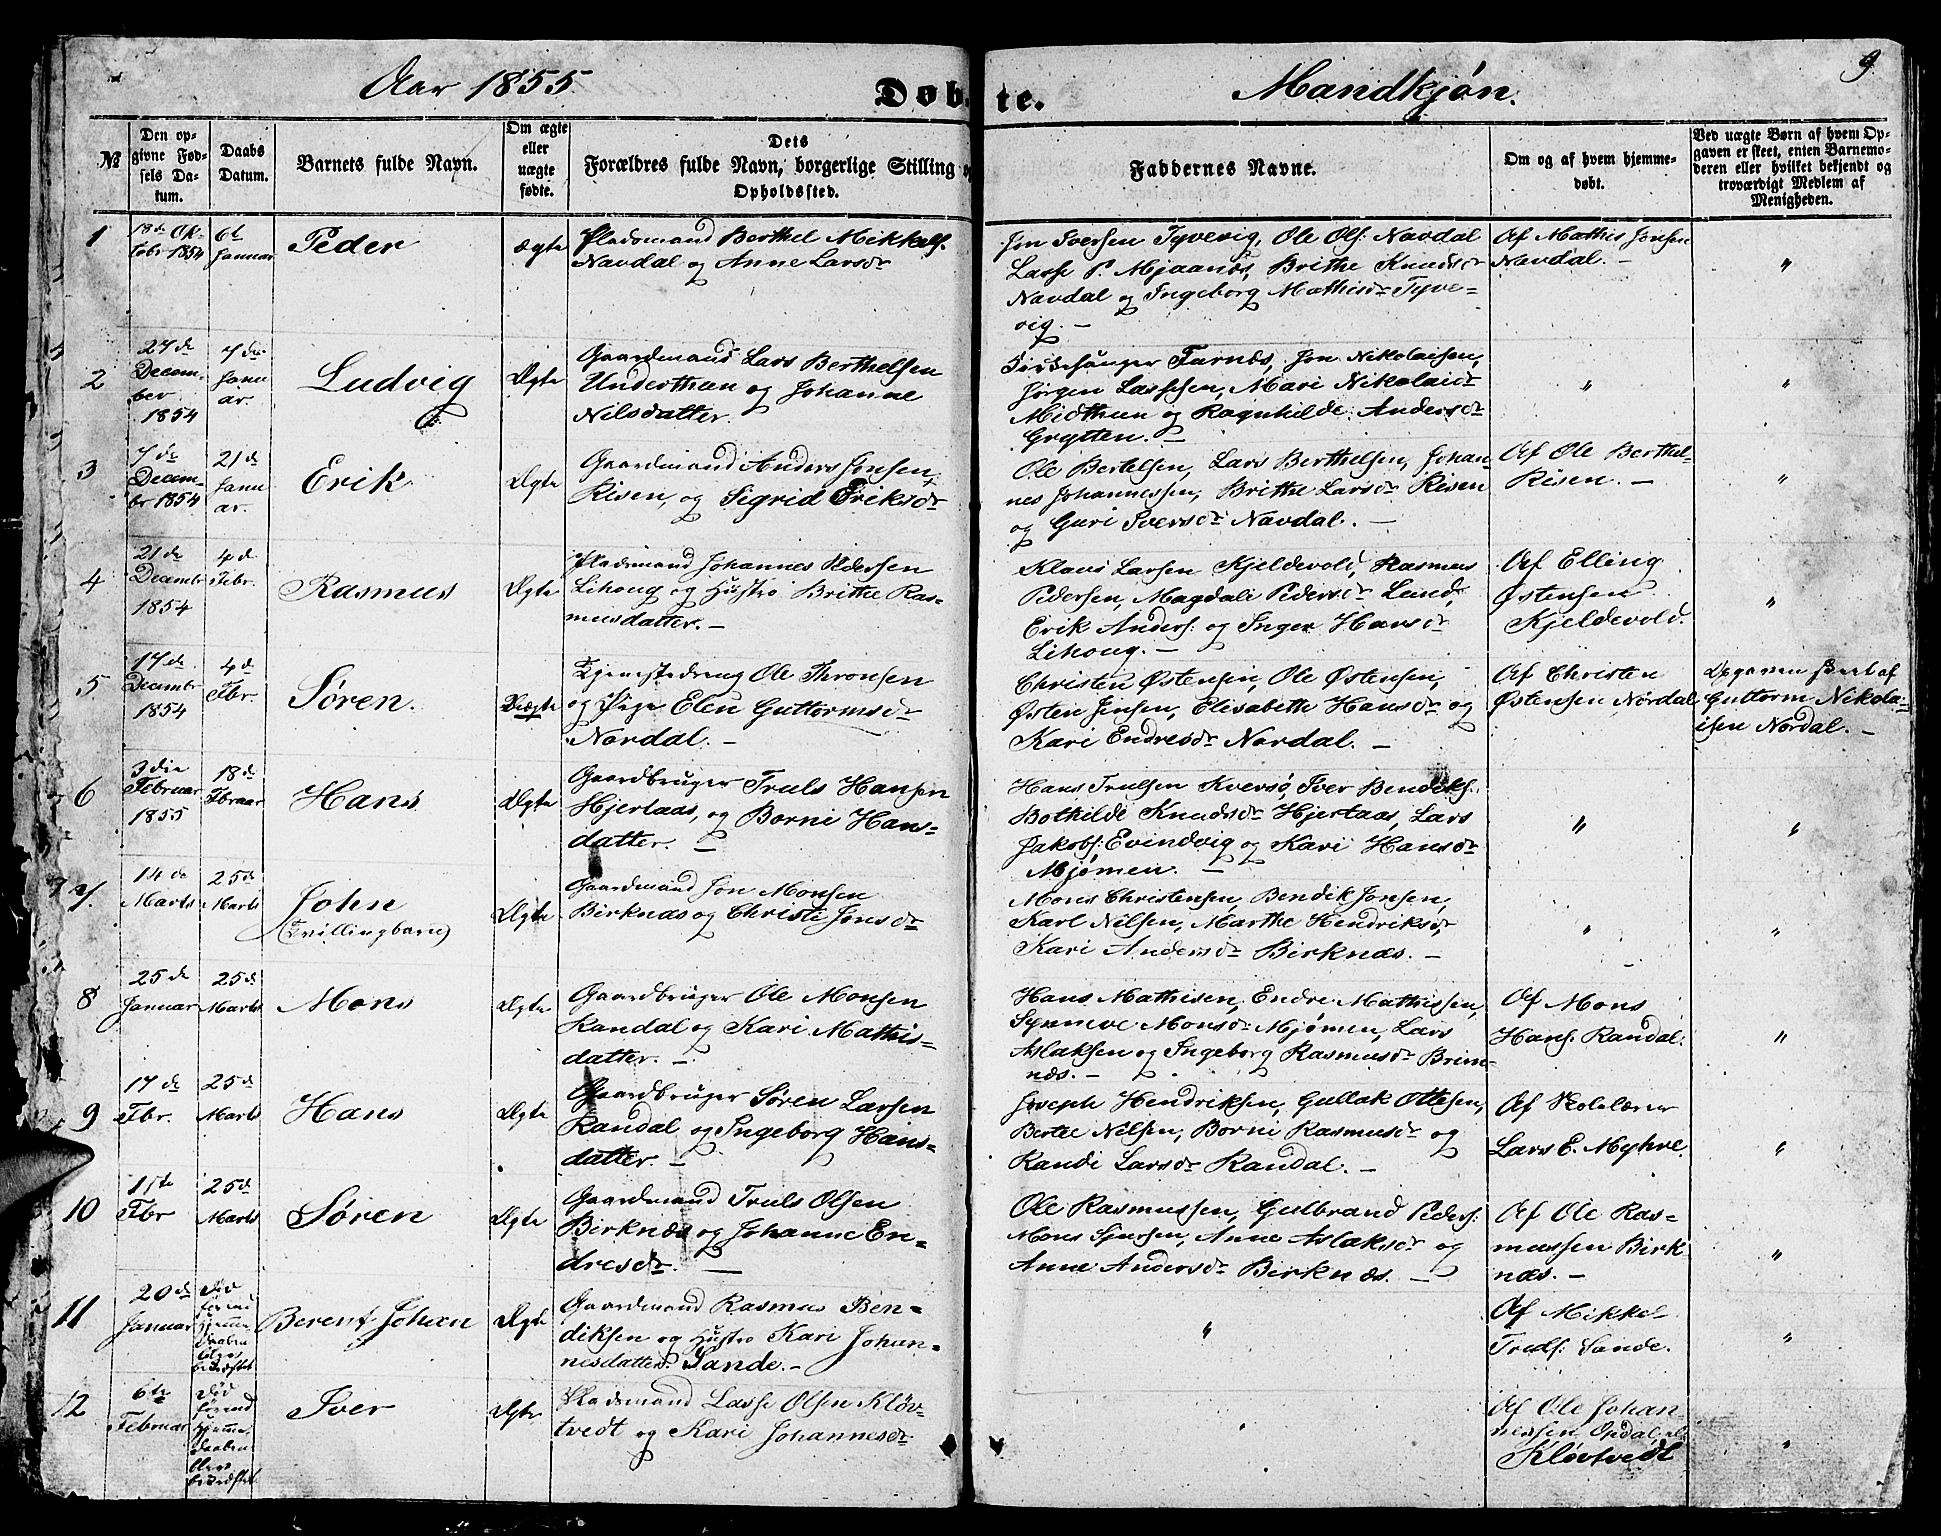 Aar 1855
Døb-
te.
Mandkjøn.
9
№
Den op-
givne Fød-
sels Da-
tum.
Daabs
Datum.
Barnets fulde Navn.
Om ægte
eller
uægte
fødte.
Dets
Forældres fulde Navn, borgerlige Stilling o
Opholdssted.
Faddernes Navne.
Om og af hvem hjemme-
døbt.
Ved uægte Børn af hvem Op-
gaven er skeet, enten Barnemo-
deren eller hvilket bekjendt og
troværdigt Medlem af
Menigheden.
1
18de Ok-
tobr 1854
6te
Januar
Peder
ægte
Pladsmand Berthel Mikkels.
Navdal og Anne Larsdr
Jon Iversen Tyvevig, Ole Ols: Navdal
Lasse P. Mjaanes, Brithe Knudsdr
Navdal og Ingeborg Mathisdr Tyve-
vig. –
Af Mathis Jonsen
Navdal. –
"
2
27de
Decem-
ber
1854
7de
Janu
ar.
Ludvig
Ægte
Gaardmand Lars Berthelsen
Underthun og Johanne
Nilsdatter.
Farnæs, Jon Nikolaisen,
Jørgen Lassesen, Mari Nikolaidr
Midthun og Ragnhilde Andersdr
Grytten. –
"
"
3
7de
Decem-
br 1854
21de
Janu
ar.
Erik
Ægte
Gaardmand Anders Jonsen
Risen, og Sigrid Eriksdr
Ole Bertelsen, Lars Berthelsen, Johan-
nes Johannessen, Brithe Larsdr Risen
og Guri Iversdr Navdal. –
Af Ole Berthel-
Risen. –
"
4
21de
Decembr
1854
4de
Febr.
Rasmus
Ægte
Pladsmand Johannes Pedersen
Lihoug og Hustro Brithe Ras-
musdatter. –
Klaus Larsen Kjeldevold, Rasmus
Pedersen, Magdali Pedersdr Lund,
Erik Anders: og Inger Hansdr
Lihoug. –
Af Elling
Østensen
Kjeldevold.
"
5
17de
Decembr
1854
4de
Fbr.
Søren.
Uægte
Tjenestedreng Ole Thronsen
og Pige Elen Guttormsdr
Nordal. –
Christen Østensen, Ole Østensen,
Østen Jensen, Elisabeth Hansdr og
Kari Endresdr Nordal. –
Af Christen
Østensen Nordal
Opgaven skeet af
Guttorm Nikola-
isen Nordal. –
6
3die
Februar
1855
18de
Fbruar
Hans
Ægte
Gaardbruger Truls Hansen
Hjertaas, og Borni Hans-
datter. –
Hans Trulsen Kversø, Iver Bendiks:
Bothilde Knudsdr Hjertaas, Lars
Jakobs: Evindvig og Kari Hansdr
Mjømen. –
"
"
7.
14de
Marts
25de
Marts
John
(Tvillingbarn)
Ægte
Gaardmand Jon Monsen
Birknæs og Christi Jonsdr
Mons Christensen, Bendik Jonsen,
Karl Nilsen, Marthe Hendriksdr,
Kari Andersdr Birknæs. –
"
"
8
25de
Januar
25de
Marts
Mons
Ægte
Gaardbruger Ole Monsen
Randal og Kari Mathis-
datter. –
Hans Mathisen, Endre Mathissen,
Synneve Monsdr Mjømen, Lars
Aslaksen og Ingeborg Rasmusdr Brim-
næs. –
Af Mons
Hans: Randal.
"
9
17de
Fbr.
25de
Marts
Hans
Ægte
Gaardbruger Søren Larsen
Randal og Ingeborg Hans-
datter. –
Joseph Hendriksen, Gullak Ottesen,
Bertel Nilsen, Borni Rasmusdr og
Randi Larsdr Randal. –
Af Skolelærer
Lars E. Myhre.
"
10
11te
Fbr
25de
Marts
Søren
Ægte
Gaardmand Truls Olsen
Birknæs og Johanne En-
dresdr. –
Ole Rasmussen, Gulbrand Peders:
Mons Sjursen, Anne Aslaksdr og
Anne Andersdr Birknæs. –
Af Ole Ras-
mussen Birk
næs. –
"
11
20de
Januar
Død
førend
Hjemme
daaben
blev
bekræftet
Berent Johan
Ægte
Gaardmand Rasmus Ben-
diksen og Hustro Kari Johan-
nesdatter Sande. –
"
Af Mikkel
Sande.
"
12
6te
Februar
Død
førend
Hjemme
daaben
blev
bekræftet
Iver
Ægte
Pladsmand Lasse Olsen Kløv-
tvedt og Kari Johannesdr
"
Af Ole Johan-
nessen Opdal
Kløvtvedt
"